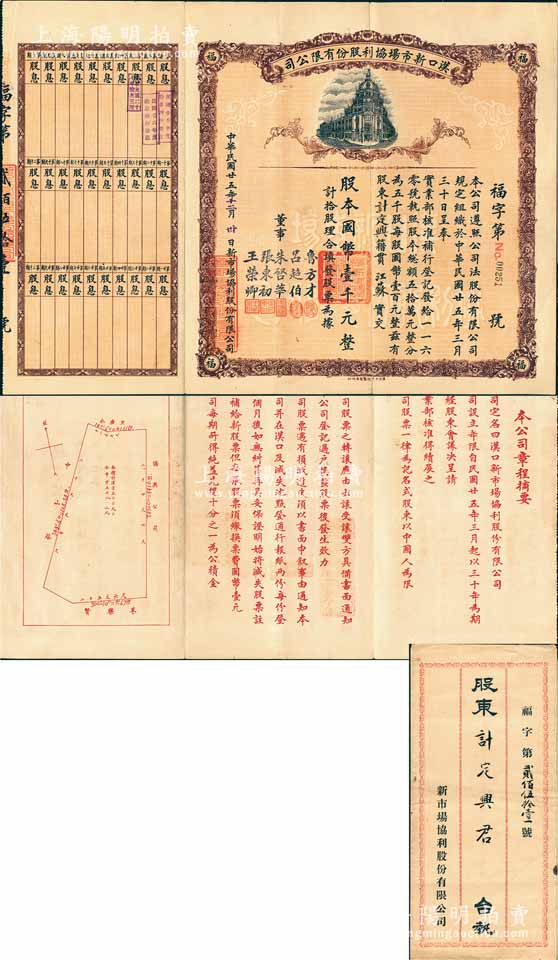 上海陽明拍賣
漢口新市場協利股份有限公司
福
福
福
福
福字第
No 00251
號
本公司遵照公司法股份有限公司
規定組織於中華民國廿五年三月
三十日呈奉
實業部核准補行登記發給一一六
零號執照股本總額五十萬元整分
為五千股每股國幣壹百元整茲有
股東計定興籍貫江蘇實交
股本國幣壹千元整
計拾股理合填發股票為據
董事
魯方才
呂超伯
朱啓華
張東初
王榮卿
中華民國廿五年十二月卅日新市場協利股份有限公司
股息 股息 股息 股息 股息 股息 股息 股息 股息 股息
股息 股息 股息 股息 股息 股息 股息 股息 股息 股息
股息 股息 股息 股息 股息 股息 股息 股息 股息 股息
福字第
貳佰伍拾壹
號
本公司章程摘要
司定名曰漢口新市場協利股份有限公司
司設立年限自民國廿五年三月起以三十年為期
經股東會議決呈請
業部核准得續展之
司股票一律為記名式股東以中國人為限
司股票之轉讓應由出讓受讓雙方具備書面通知
公司登記過戶換給股票後發生效力
司股票遇有損或遺失須以書面申敘事由通知本
司并在漢口及滅失地點登通行報紙兩份每份登
個月後如無糾葛再具妥保證明始將滅失股票註
補給新股票但每張股票須繳換票費國幣壹元
司每期所得純益先提十分之一為公積金
福字第貳佰伍拾壹號
股東計定興君 台執
新市場協利股份有限公司
上海陽明拍賣